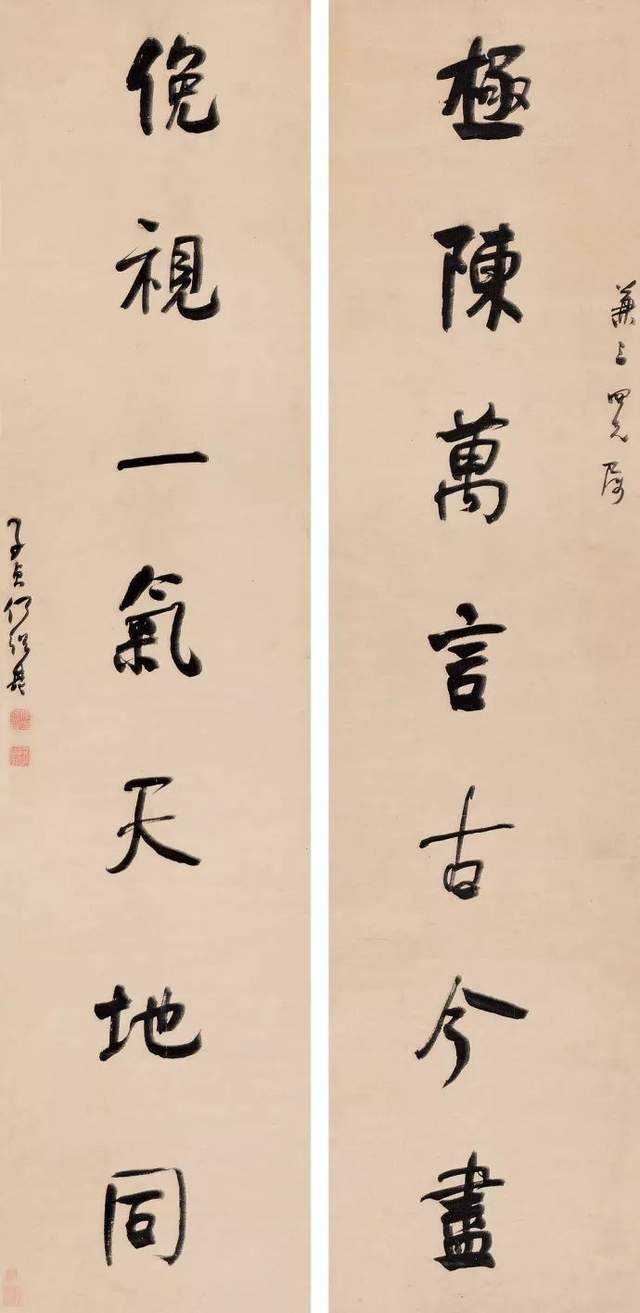 四兄屬
極陳萬言古今盡
俛視一氣天地同
子貞何紹基